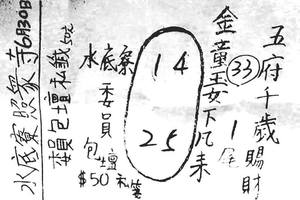 五府千歲賜財
33
1尾
金童玉女下凡来
14
25
水底寮
委員
包壇
$50 私簽
委員包壇私籤
水底寮照眾寺6月30日